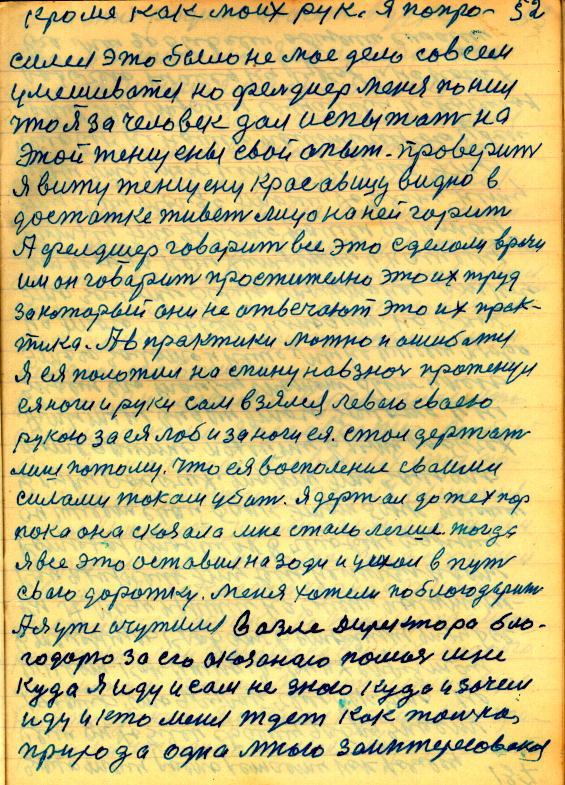 кроме как моих рук. я попро- 52
сился это было не мое дело совсем
умешиватся но фелдшер меня понял
что я за человек дал испытат на
этой женщены свой опыт. проверит
я вижу женщену красавицу видно в
достатке живет лицо на ней горит
А фелдшер говарит все это сделали врачи
им он говарит простително это их труд
за который они не отвечают это их прак-
тика. А в практики можно и ошибатся
я ея положил на спину навзноч протенул
ея ноги и руки сам взялся левою своею
рукою за ея лоб и за ноги ея. стал держат
лиш потому. что ея восполение своими
силами током убат. я держал до тех пор
пока она сказала мне стало легше. тогда
я все это оставил назади и уехал в пут
свою дорожку. меня хотели поблогодарит
А я уже очутился возле директора бло-
годарю за его оказанаю помоч мне
куда я иду и сам не знаю куда и зачем
иду и кто меня ждет как толко,
природа одна мною заинтересована